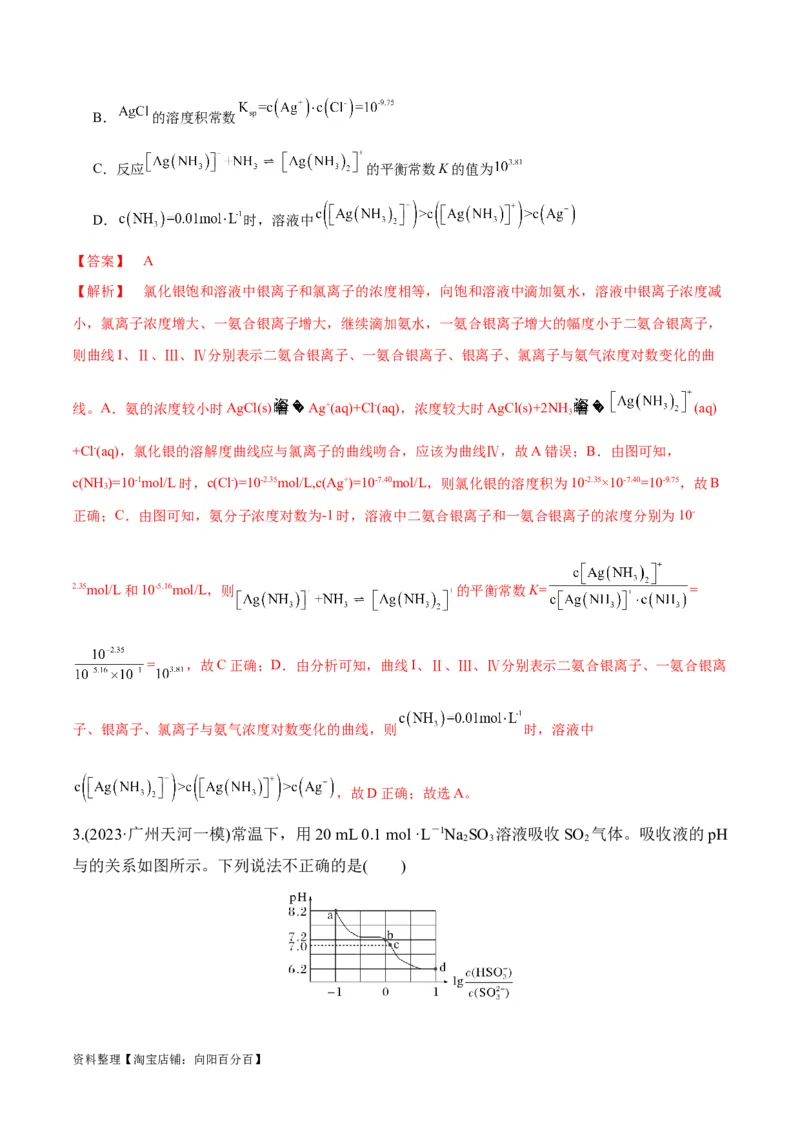 B． AgCl 的溶度积常数 K_sp=c(Ag⁺)·c(Cl⁻)=10⁻⁹·⁷⁵
C．反应[Ag(NH₃)]⁺+NH₃ ⇌ [Ag(NH₃)₂]⁺ 的平衡常数K的值为10³·⁸¹
D． c(NH₃)=0.01mol·L⁻¹时，溶液中c([Ag(NH₃)₂]⁺)>c([Ag(NH₃)]⁺)>c(Ag⁺)
【答案】 A
【解析】 氯化银饱和溶液中银离子和氯离子的浓度相等，向饱和溶液中滴加氨水，溶液中银离子浓度减
小，氯离子浓度增大、一氨合银离子增大，继续滴加氨水，一氨合银离子增大的幅度小于二氨合银离子，
则曲线I、Ⅱ、Ⅲ、Ⅳ分别表示二氨合银离子、一氨合银离子、银离子、氯离子与氨气浓度对数变化的曲
线。A．氨的浓度较小时AgCl(s) Ag⁺(aq)+Cl⁻(aq)，浓度较大时AgCl(s)+2NH₃ [Ag(NH₃)₂]⁺ (aq)
+Cl⁻(aq)，氯化银的溶解度曲线应与氯离子的曲线吻合，应该为曲线Ⅳ，故A错误；B．由图可知，
c(NH₃)=10⁻¹mol/L时，c(Cl⁻)=10⁻²·³⁵mol/L,c(Ag⁺)=10⁻⁷·⁴⁰mol/L，则氯化银的溶度积为10⁻²·³⁵×10⁻⁷·⁴⁰=10⁻⁹·⁷⁵，故B
正确；C．由图可知，氨分子浓度对数为-1时，溶液中二氨合银离子和一氨合银离子的浓度分别为10⁻
²·³⁵mol/L和10⁻⁵·¹⁶mol/L，则[Ag(NH₃)]⁺+NH₃ ⇌ [Ag(NH₃)₂]⁺的平衡常数K= c[Ag(NH₃)₂]⁺ / c[Ag(NH₃)]⁺·c(NH₃) =
10⁻²·³⁵ / 10⁻⁵·¹⁶×10⁻¹ = 10³·⁸¹，故C正确；D．由分析可知，曲线I、Ⅱ、Ⅲ、Ⅳ分别表示二氨合银离子、一氨合银离
子、银离子、氯离子与氨气浓度对数变化的曲线，则 c(NH₃)=0.01mol·L⁻¹ 时，溶液中
c([Ag(NH₃)₂]⁺)>c([Ag(NH₃)]⁺)>c(Ag⁺)，故D正确；故选A。
3.(2023·广州天河一模)常温下，用20 mL 0.1 mol ·L－1Na₂SO₃溶液吸收SO₂气体。吸收液的pH
与的关系如图所示。下列说法不正确的是( )
pH
8.2
a
7.2
b
7.0
c
6.2
d
lg c(HSO₃⁻)/c(SO₃²⁻)
−1 0 1
资料整理【淘宝店铺：向阳百分百】